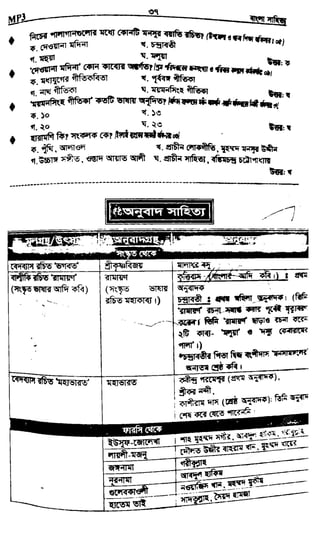 MP3 ৩৭ বাংলা সাহিত্য
নিচের পালাগানগুলোর মধ্যে কোনটি মনসুর বয়াতি রচিত?
ক. দেওয়ানা মদিনা খ. চন্দ্রাবতী
গ. মহুয়া ঘ. মলুয়া উত্তর: ক
'দেওয়ানা মদিনা' কোন কাব্যের অন্তর্গত?
ক. মধ্যযুগের গীতিকবিতা খ. পূর্ববঙ্গ গীতিকা
গ. নাথ গীতিকা ঘ. মৈমনসিংহ গীতিকা উত্তর: ঘ
'মৈমনসিংহ গীতিকা' কতটি ভাষায় অনূদিত?
ক. ১০ খ. ১৩
গ. ২০ ঘ. ২৩ উত্তর: ঘ
হারামণি কি? সংকলক কে?
ক. পুঁথি, আলাওল খ. প্রাচীন লোকগীতি, মুহম্মদ মনসুর উদ্দীন
গ. উচ্চাঙ্গ সংগীত, ওস্তাদ আয়াত আলী ঘ. প্রাচীন সাহিত্য, বঙ্কিমচন্দ্র চট্টোপাধ্যায়
উত্তর: খ
অনুবাদ সাহিত্য
মূলগ্রন্থ/উৎস অনুবাদগ্রন্থ
সংস্কৃত থেকে
বেদব্যাস রচিত 'ভাগবত' শ্রীকৃষ্ণবিজয় মালাধর বসু
বাল্মীকি রচিত 'রামায়ণ' রামায়ণ কৃত্তিবাস (বাংলার আদি কবি।) : প্রথম
(সংস্কৃত ভাষার আদি কবি) (সংস্কৃত ভাষায় অনুবাদক
রচিত মহাকাব্য।) চন্দ্রাবতী : প্রথম মহিলা অনুবাদক। (তিনি
'রামায়ণ' রচনা
করেন। তিনি 'রামায়ণ' ছাড়াও রচনা করেন
২টি কাব্য- 'মলুয়া' ও 'দস্যু কেনারামের
পালা'।)
চন্দ্রাবতীর পিতা দ্বিজ বংশীদাস 'মনসামঙ্গলের'
অন্যতম শ্রেষ্ঠ কবি।
বেদব্যাস রচিত 'মহাভারত' মহাভারত কবীন্দ্র পরমেশ্বর (প্রথম অনুবাদক),
শ্রীকর নন্দী,
কাশীরাম দাস (শ্রেষ্ঠ অনুবাদক): তিনি অনুবাদ
শেষ করে যেতে পারেননি
ফারসি থেকে
ইউসুফ-জোলেখা শাহ মুহম্মদ সগীর, আবদুল হাকিম,
লায়লী-মজনু দৌলত উজীর বাহরাম খান, মুহম্মদ খাতের
জঙ্গনামা গরীবুল্লাহ
নূরনামা আবদুল হাকিম
গুলেবকাওলী নওয়াজিস খান, মুহম্মদ মুকীম
হাতেম তাই সাদতুল্লাহ, সৈয়দ হামজা